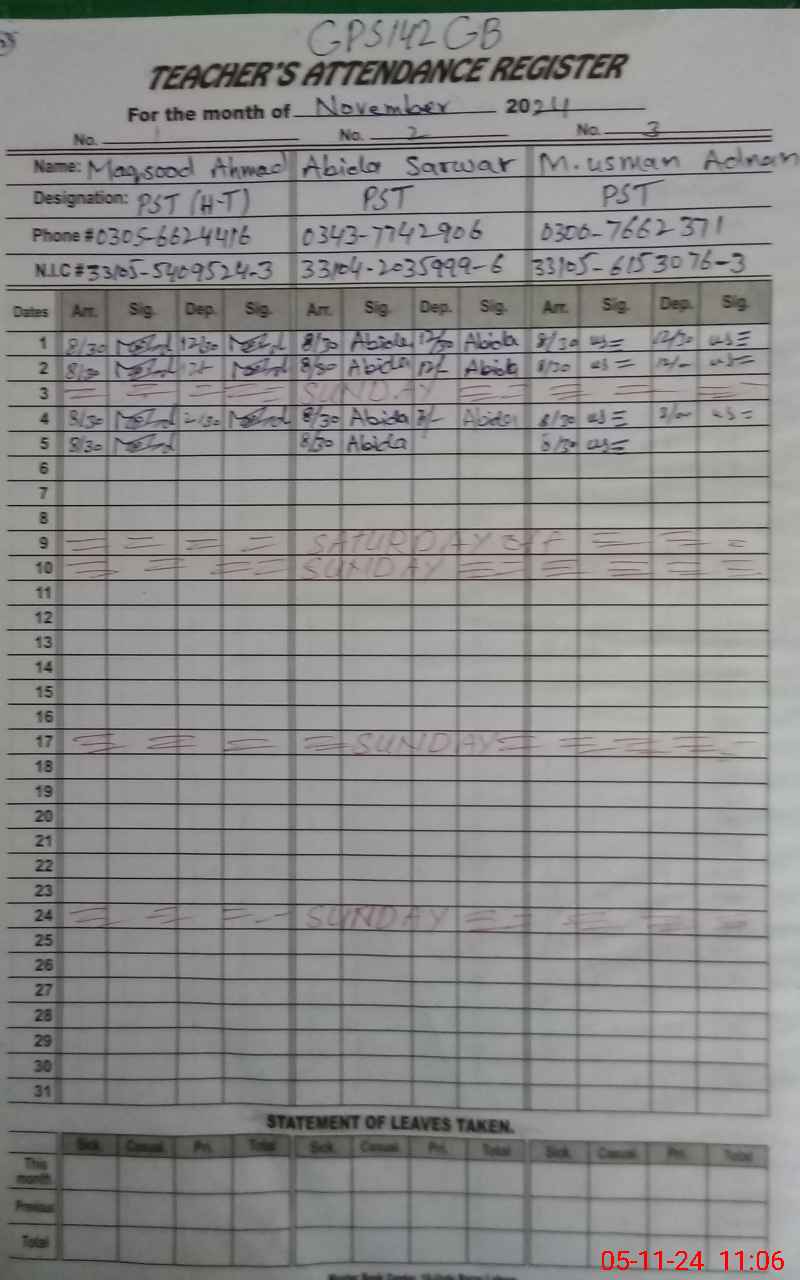 GPS 142 GB
TEACHER'S ATTENDANCE REGISTER
For the month of November 2024
No. 1 No. 2 No. 3
Name: Maqsood Ahmad Abida Sarwar M. usman Adnan
Designation: PST (H-T) PST PST
Phone # 0305-6624416 0343-7742906 0306-7662371
N.I.C # 33105-5409524-3 33104-2035999-6 33105-6153076-3
Dates Arr. Sig. Dep. Sig. Arr. Sig. Dep. Sig. Arr. Sig. Dep. Sig.
1 8/30 12/30 8/30 Abida 12/30 Abida 8/30 us 12/30 us
2 8/30 8/30 Abida 12/- Abida 8/30 us 12/- us
3 SUNDAY
4 8/30 8/30 Abida 2/- Abida 8/30 us us
5 8/30 8/30 Abida 8/30 us
6
7
8
9 SATURDAY off
10 SUNDAY
11
12
13
14
15
16
17 SUNDAY
18
19
20
21
22
23
24 SUNDAY
25
26
27
28
29
30
31
STATEMENT OF LEAVES TAKEN.
Sick. Casual. Pri. Total Sick. Casual. Pri. Total Sick. Casual. Pri. Total
This
month
Previous
Total
05-11-24 11:06